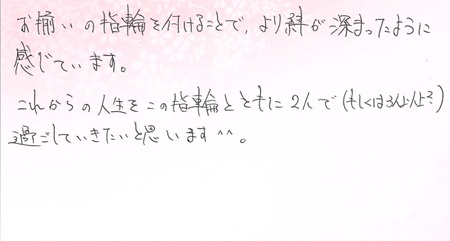 お揃いの指輪を付けることで、より絆が深まったように
感じています。
これからの人生をこの指輪とともに2人で(もしくは3人以上?)
過ごしていきたいと思います^^。